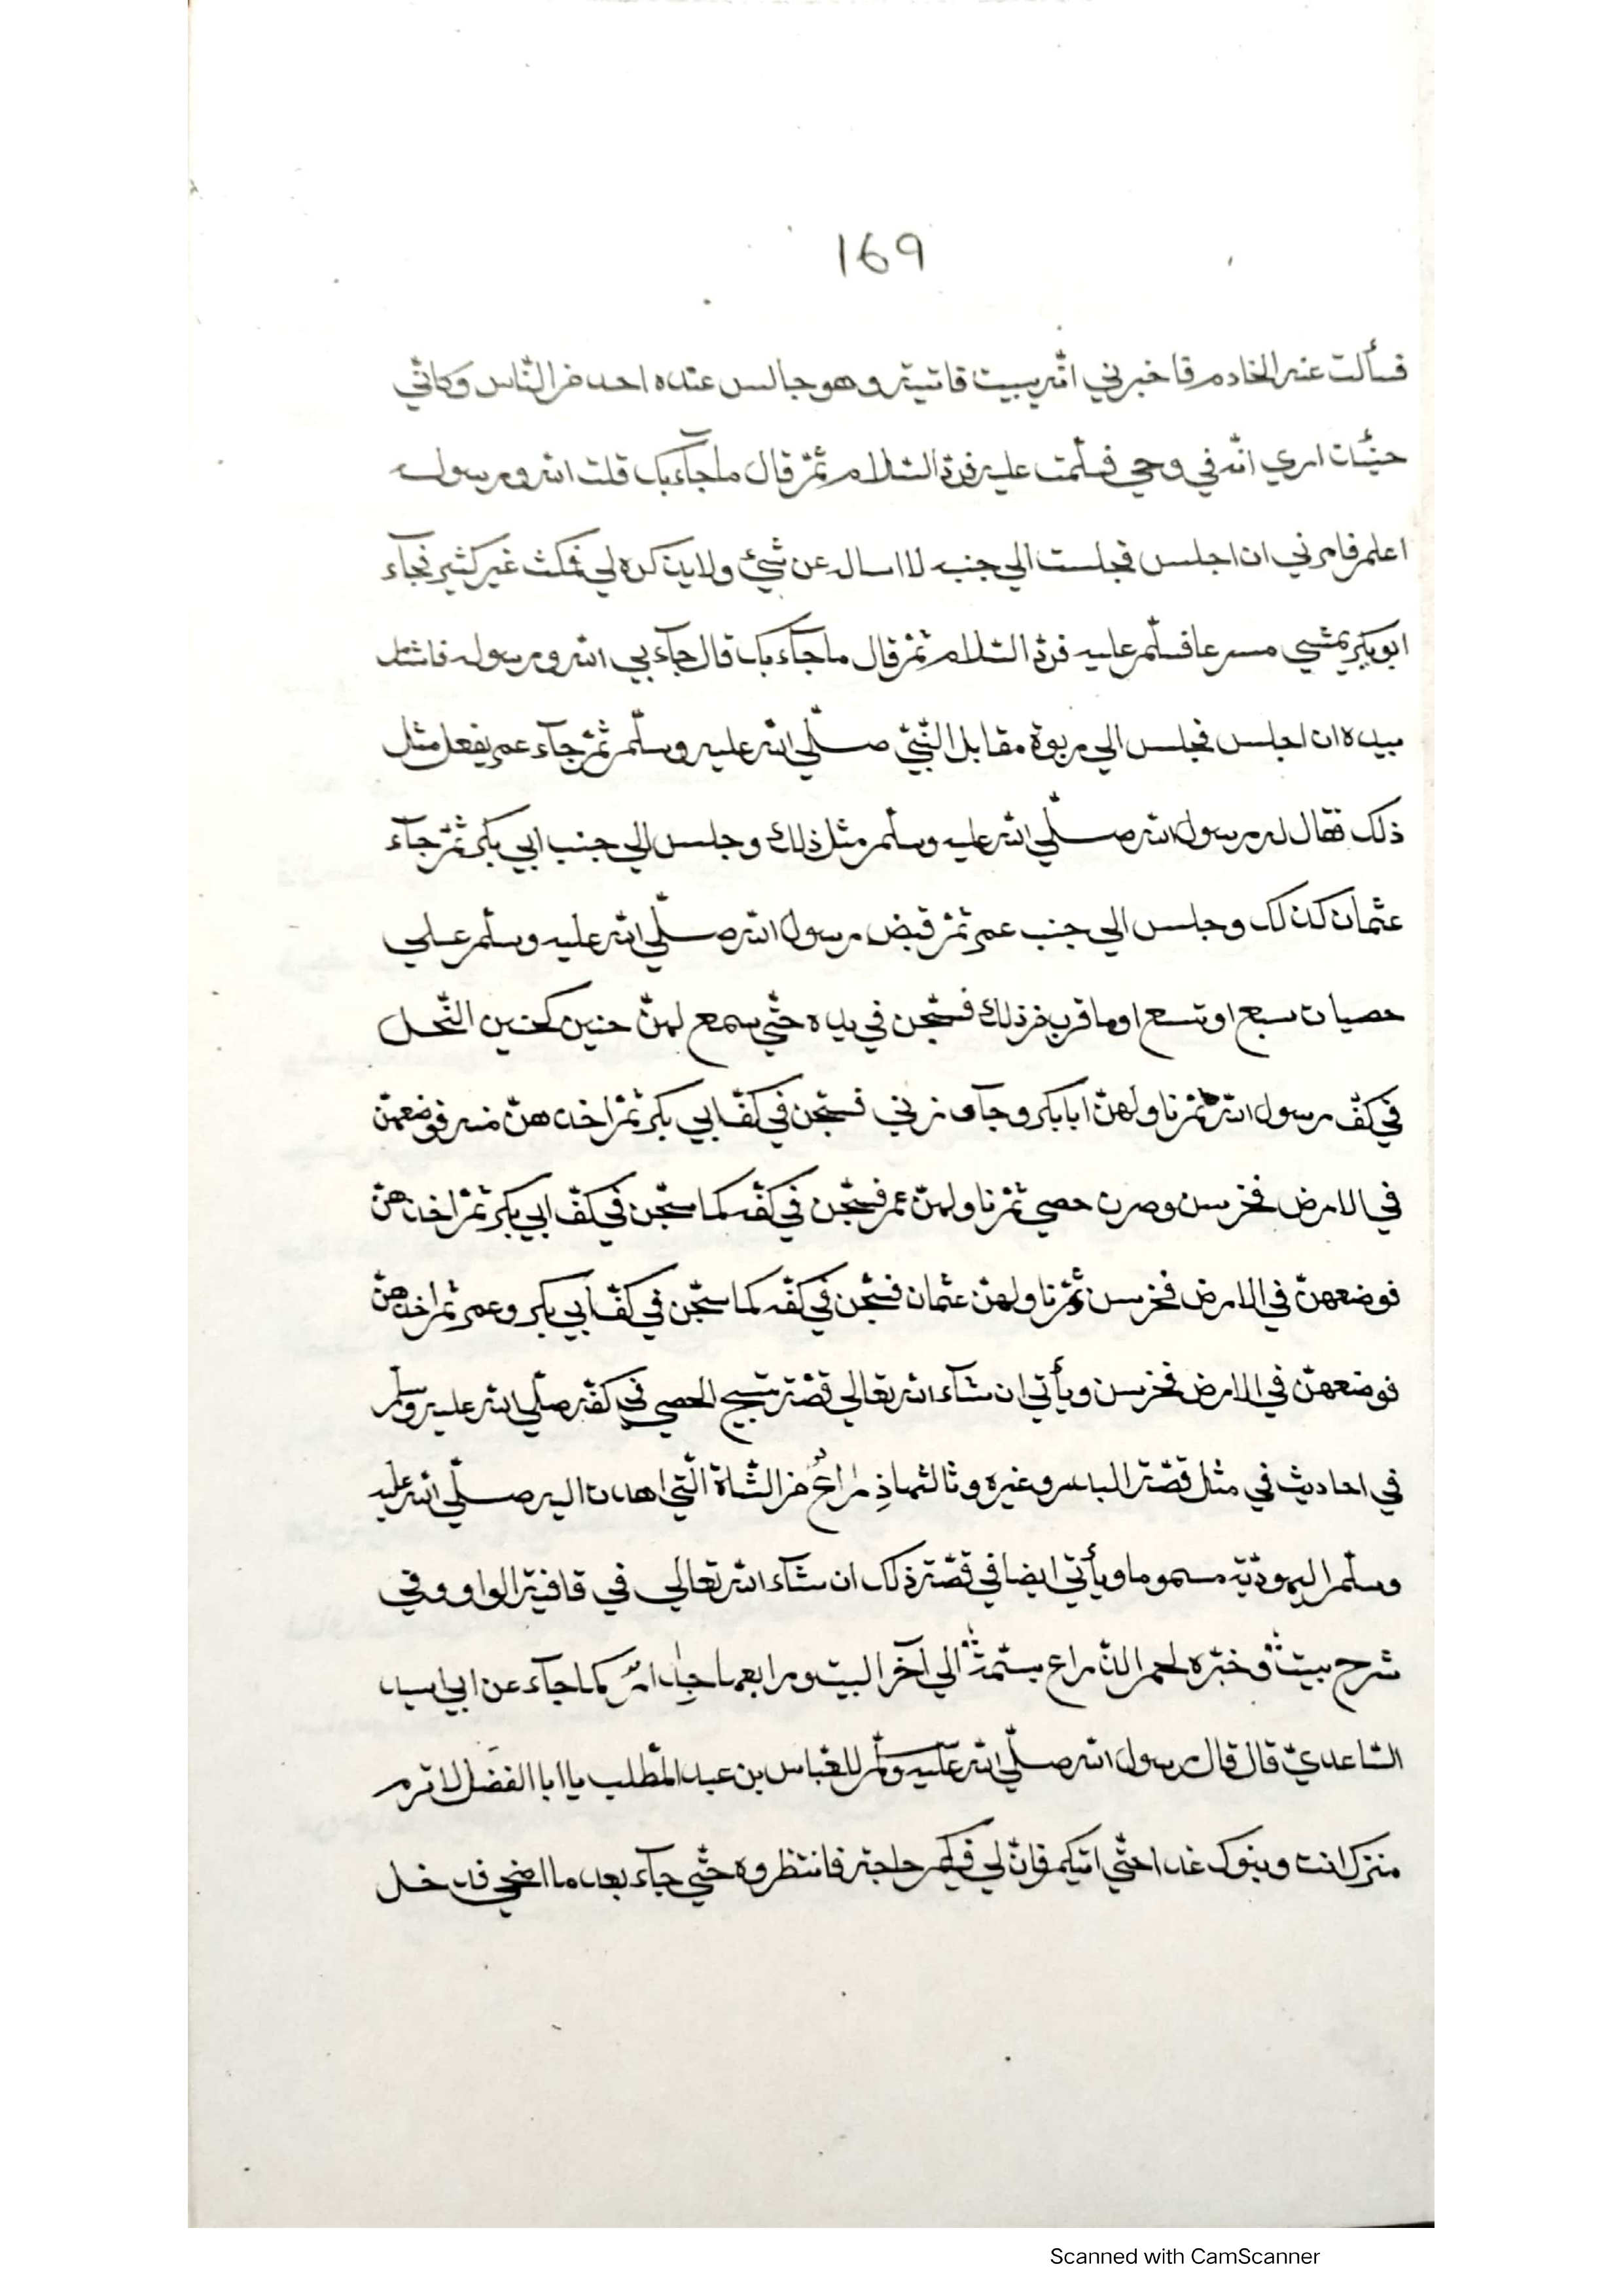 169
فسألت عنه الخادم فاخبرني انّه ببيت فاتيته وهو جالس عنده احد من النّاس وكانّي
حينئان اري انّه في وحي فسلّمت عليه فردّ السّلام ثمّ قال ما جآء بك قلت الله ورسوله
اعلم فامرني ان اجلس فجلست الي جنبه لا اساله عن شيئ ولا يذكره لي فمكث غير كثير فجآء
ابو بكر يمشي مسرعا فسلّم عليه فردّ السّلام ثمّ قال ما جآء بك قال جآء بي الله ورسوله فاشار
بيده ان اجلس فجلس الي ربوة مقابل النّبيّ صلّي الله عليه وسلّم ثمّ جآء عمر يفعل مثل
ذلك فقال له رسول الله صلّي الله عليه وسلّم مثل ذلك وجلس الي جنب ابي بكر ثمّ جآء
عثمان كذلك وجلس الي جنب عمر ثمّ قبض رسول الله صلّي الله عليه وسلّم علي
حصيات سبع او تسع او ما قرب من ذلك فسبّحن في يده حتّي سمع لهنّ حنين كحنين النّحل
في كفّ رسول الله ثمّ ناولهنّ ابا بكر وجآوزني فسبّحن في كفّ ابي بكر ثمّ اخذهنّ منه فوضعهنّ
في الارض فخرسن وصرن حصي ثمّ ناولهنّ عمر فسبّحن في كفّه كما سبّحن في كفّ ابي بكر ثمّ اخذهنّ
فوضعهنّ في الارض فخرسن ثمّ ناولهنّ عثمان فسبّحن في كفّه كما سبّحن في كفّ ابي بكر وعمر ثمّ اخذهنّ
فوضعهنّ في الارض فخرسن ويأتي ان شآء الله تعالي قصّة تسبيح الحصي في كفّه صلّي الله عليه وسلّم
في احاديث في مثل قصّة الباسر وغيره وثالثها ذراعٌ من الشّاة الّتي اهدت اليه صلّي الله عليه
وسلّم اليهوديّة مسموما ويأتي ايضا في قصّة ذلك ان شآء الله تعالي في قافية الواو وفي
شرح بيت وخبّره لحم الذّراع بسمّه الي آخر البيت ورابعها جدار كما جآء عن ابي اسيد
السّاعديّ قال قال رسول الله صلّي الله عليه وسلّم للعبّاس بن عبد المطّلب يا ابا الفضل لا ترم
منزلك انت وبنوك غدا حتّي اتيكم فانّ لي فيكم حاجة فانتظروه حتّي جآء بعد ما اضحي فدخل
Scanned with CamScanner